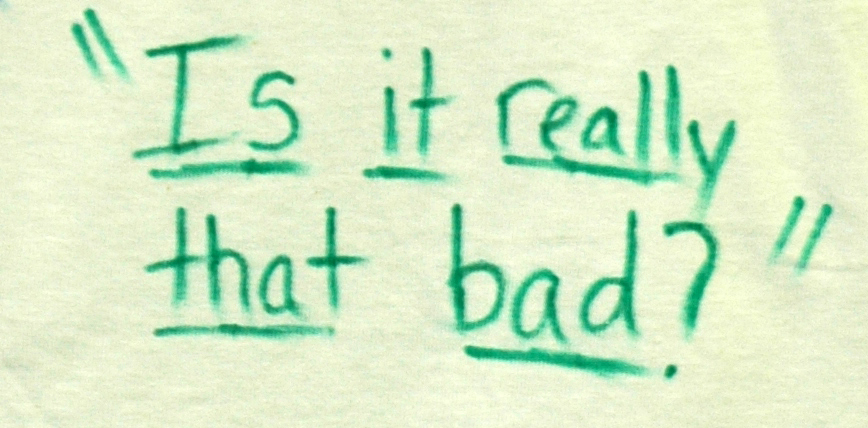 "Is it really
that bad?"